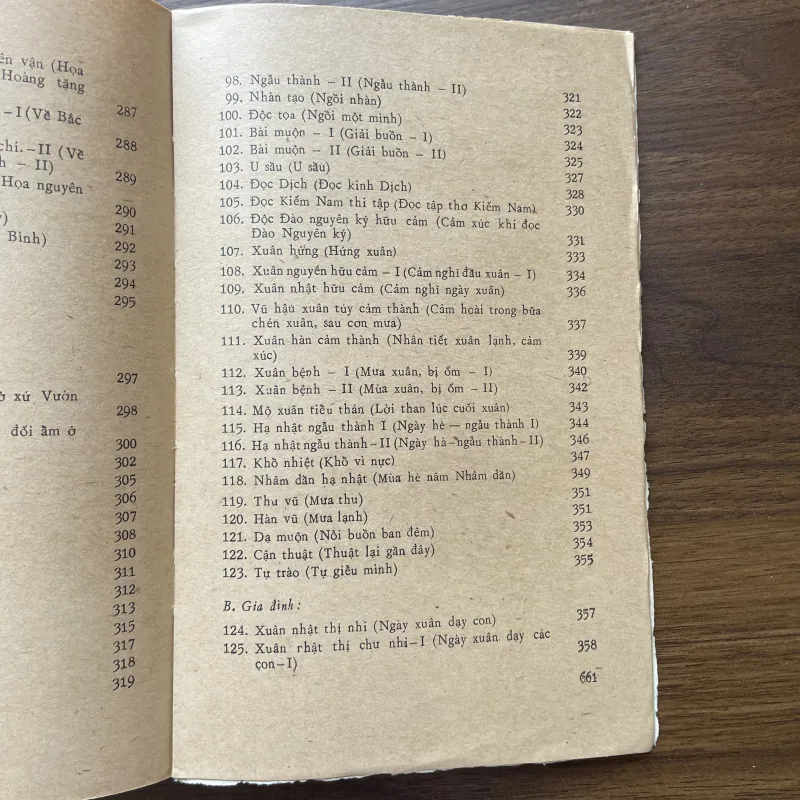 ên vận (Họa
Hoàng tặng
287
–I (Về Bắc
288
chí.–II (Về
nh – II)
289
Họa nguyên
290
)
291
Bình)
292
293
294
295
297
ở xứ Vườn
298
đối ẩm ở
300
302
305
306
307
308
310
311
312
313
315
317
318
319
98. Ngẫu thành – II (Ngẫu thành – II)
99. Nhàn tạo (Ngồi nhàn) 321
100. Độc tọa (Ngồi một mình) 322
101. Bài muộn – I (Giải buồn – I) 323
102. Bài muộn – II (Giải buồn – II) 324
103. U sầu (U sầu) 325
104. Đọc Dịch (Đọc kinh Dịch) 327
105. Đọc Kiếm Nam thi tập (Đọc tập thơ Kiếm Nam) 328
106. Độc Đào nguyên ký hữu cảm (Cảm xúc khi đọc 330
Đào Nguyên ký) 331
107. Xuân hứng (Hứng xuân) 333
108. Xuân nguyên hữu cảm – I (Cảm nghĩ đầu xuân – I) 334
109. Xuân nhật hữu cảm (Cảm nghĩ ngày xuân) 336
110. Vũ hậu xuân túy cảm thành (Cảm hoài trong bữa
chén xuân, sau cơn mưa) 337
111. Xuân hàn cảm thành (Nhân tiết xuân lạnh, cảm
xúc) 339
112. Xuân bệnh – I (Mưa xuân, bị ốm – I) 340
113. Xuân bệnh – II (Mùa xuân, bị ốm – II) 342
114. Mộ xuân tiểu thán (Lời than lúc cuối xuân) 343
115. Hạ nhật ngẫu thành I (Ngày hè — ngẫu thành I) 344
116. Hạ nhật ngẫu thành–II (Ngày hà–ngẫu thành–II) 346
117. Khổ nhiệt (Khổ vì nực) 347
118. Nhâm dần hạ nhật (Mùa hè năm Nhâm dần) 349
119. Thu vũ (Mưa thu) 351
120. Hàn vũ (Mưa lạnh) 351
121. Dạ muộn (Nỗi buồn ban đêm) 353
122. Cận thuật (Thuật lại gần đây) 354
123. Tự trào (Tự giễu mình) 355
B. Gia đình:
124. Xuân nhật thị nhi (Ngày xuân dạy con) 357
125. Xuân rhật thị chư nhi–I (Ngày xuân dạy các
con–I) 358
661